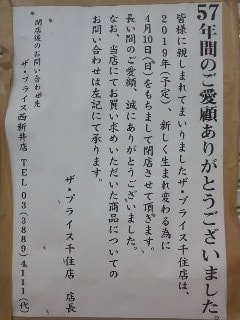 57年間のご愛顧ありがとうございました。
皆様に親しまれてまいりましたザ・プライス千住店は、
2019年(予定)、新しく生まれ変わる為に
4月10日(日)をもちまして閉店させて頂きます。
長い間のご愛顧、誠にありがとうございました。
なお、当店にてお買い求めいただいた商品についての
お問い合わせは左記にて承ります。
ザ・プライス千住店 店長
閉店後のお問い合わせ先
ザ・プライス西新井店 TEL 03(3889)4111(代)